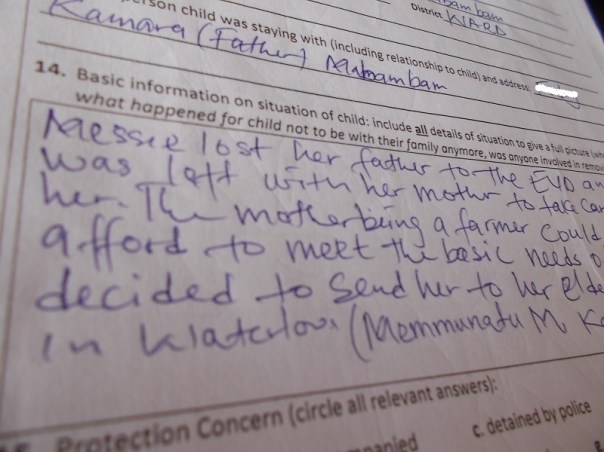 bam bam
District WARD
son child was staying with (including relationship to child) and address:
Kamara (Father) Mabambam
14. Basic information on situation of child: include all details of situation to give a full picture
what happened for child not to be with their family anymore, was anyone involved in
Messie lost her father to the EVD an
was left with her mother to take car
her. The mother being a farmer could
afford to meet the basic needs o
decided to send her to her elde
in Waterloo. (Memmunatu M K
Protection Concern (circle all relevant answers):
c. detained by police